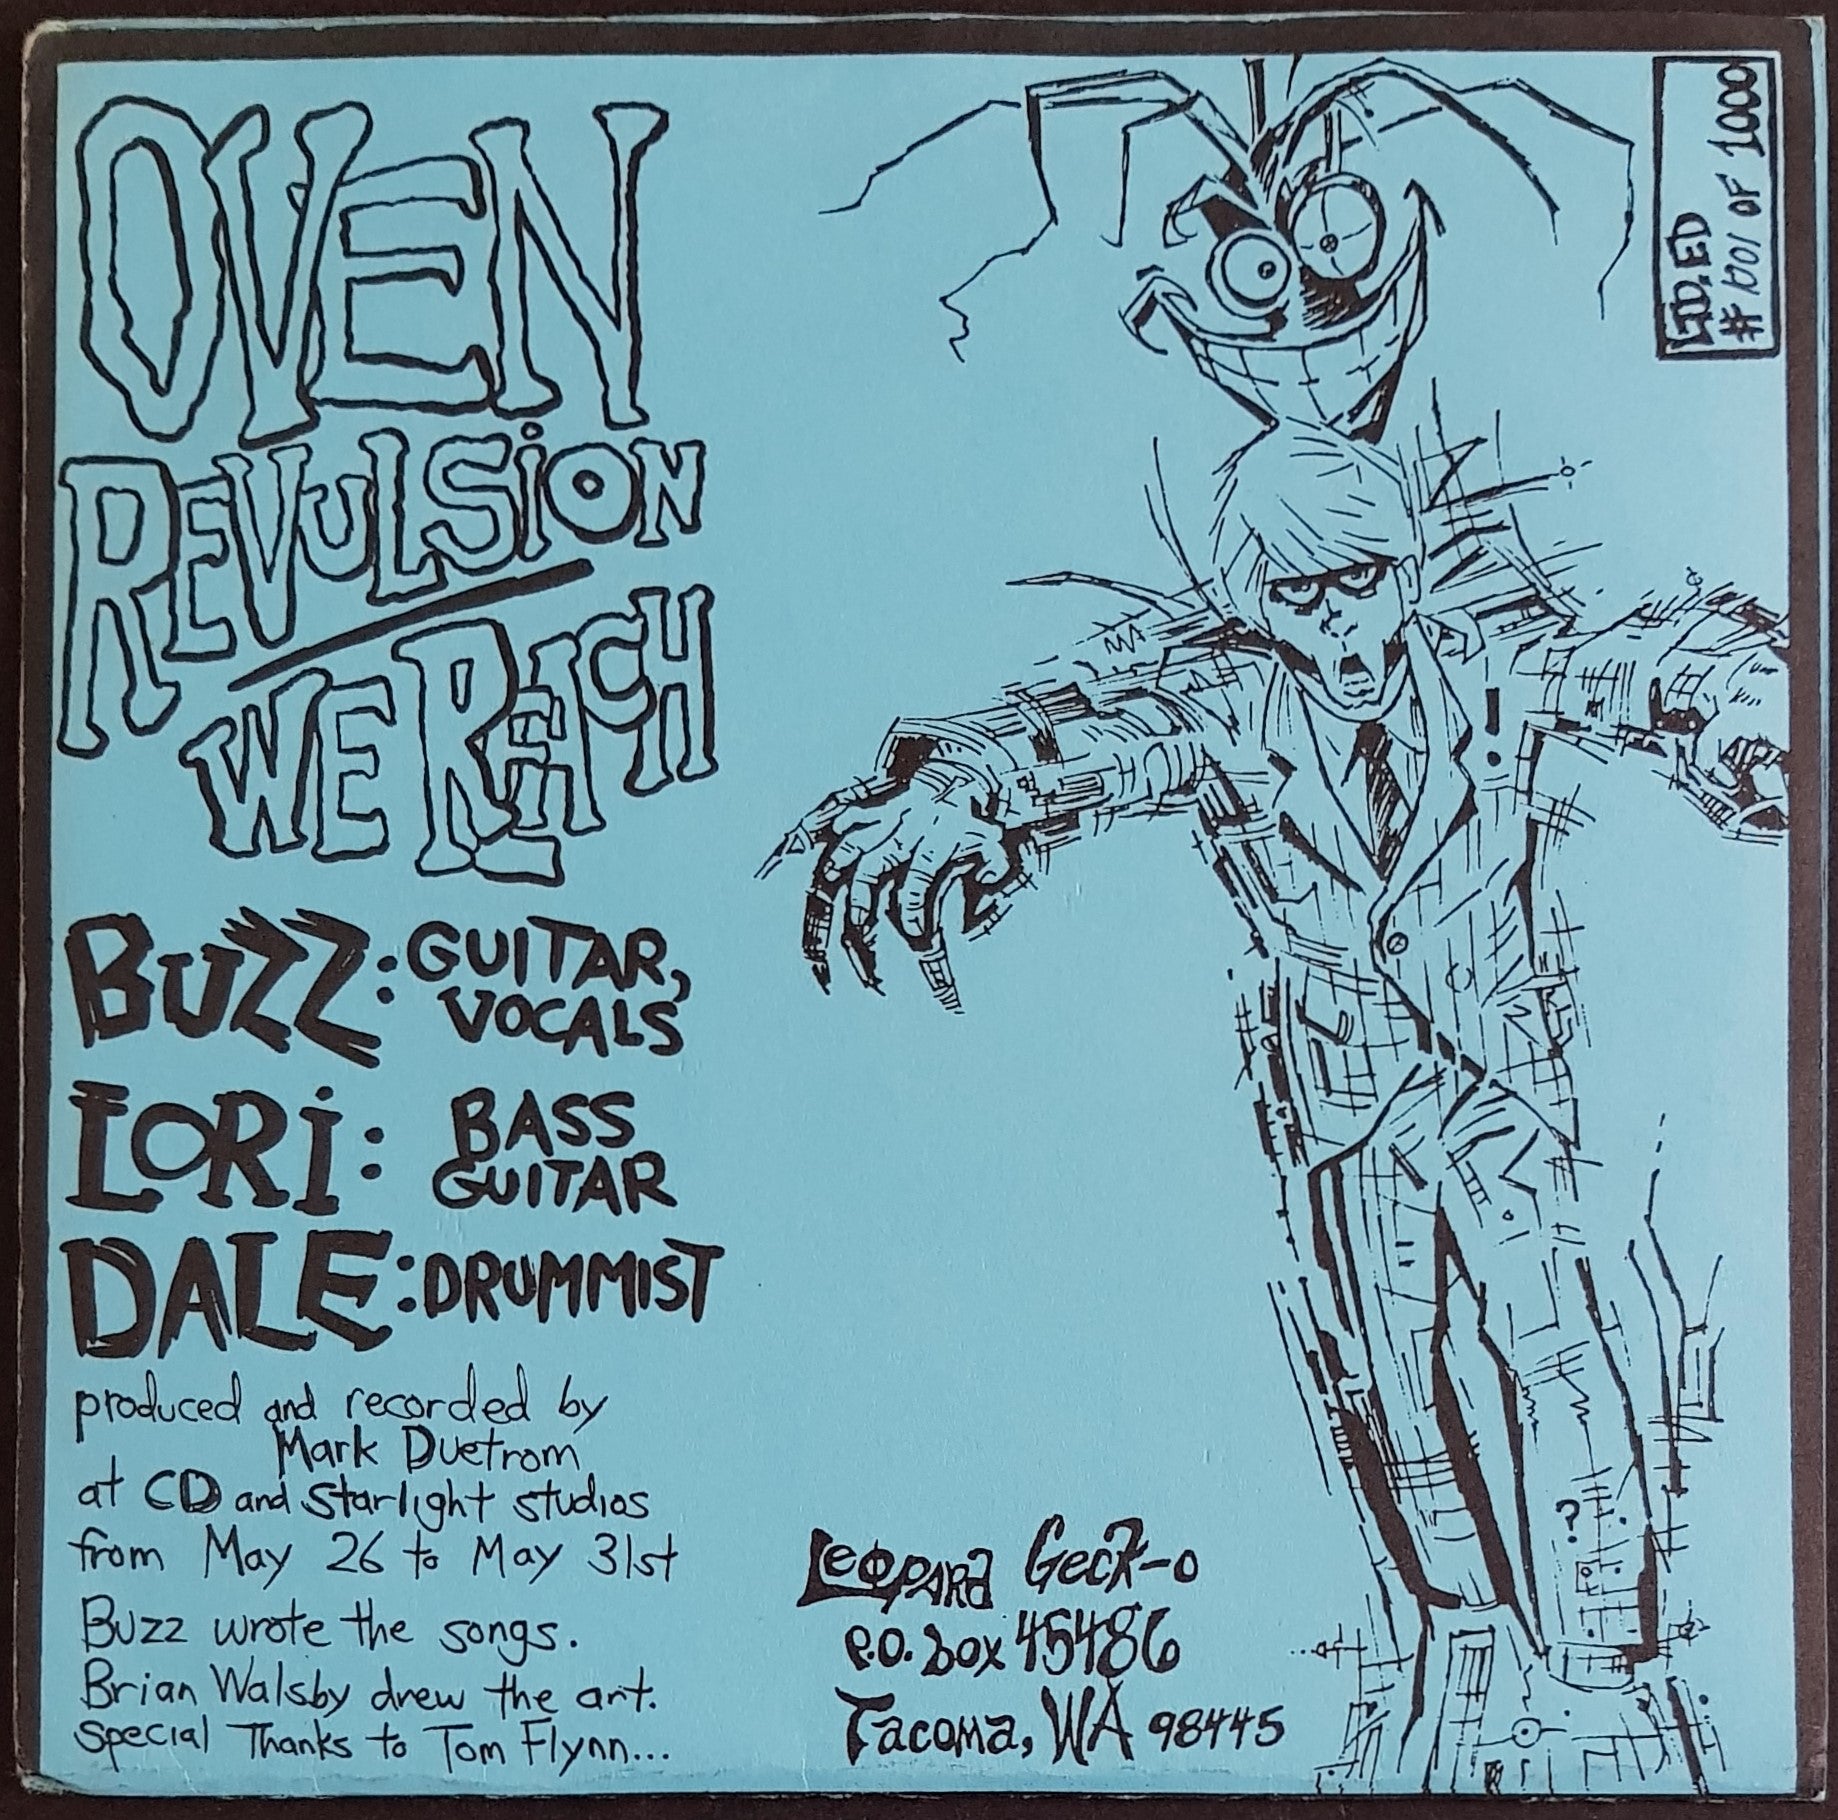 OVEN
REVULSION
WE REACH
BUZZ: GUITAR,
VOCALS
LORi: BASS
GUITAR
DALE: DRUMMIST
produced and recorded by
Mark Duetrom
at CD and Starlight studios
from May 26 to May 31st
Buzz wrote the songs.
Brian Walsby drew the art.
special Thanks to Tom Flynn...
LTD. ED
# 1001 OF 1000
Leopard Geck-o
P.O. Box 45486
Tacoma, WA 98445
!
?